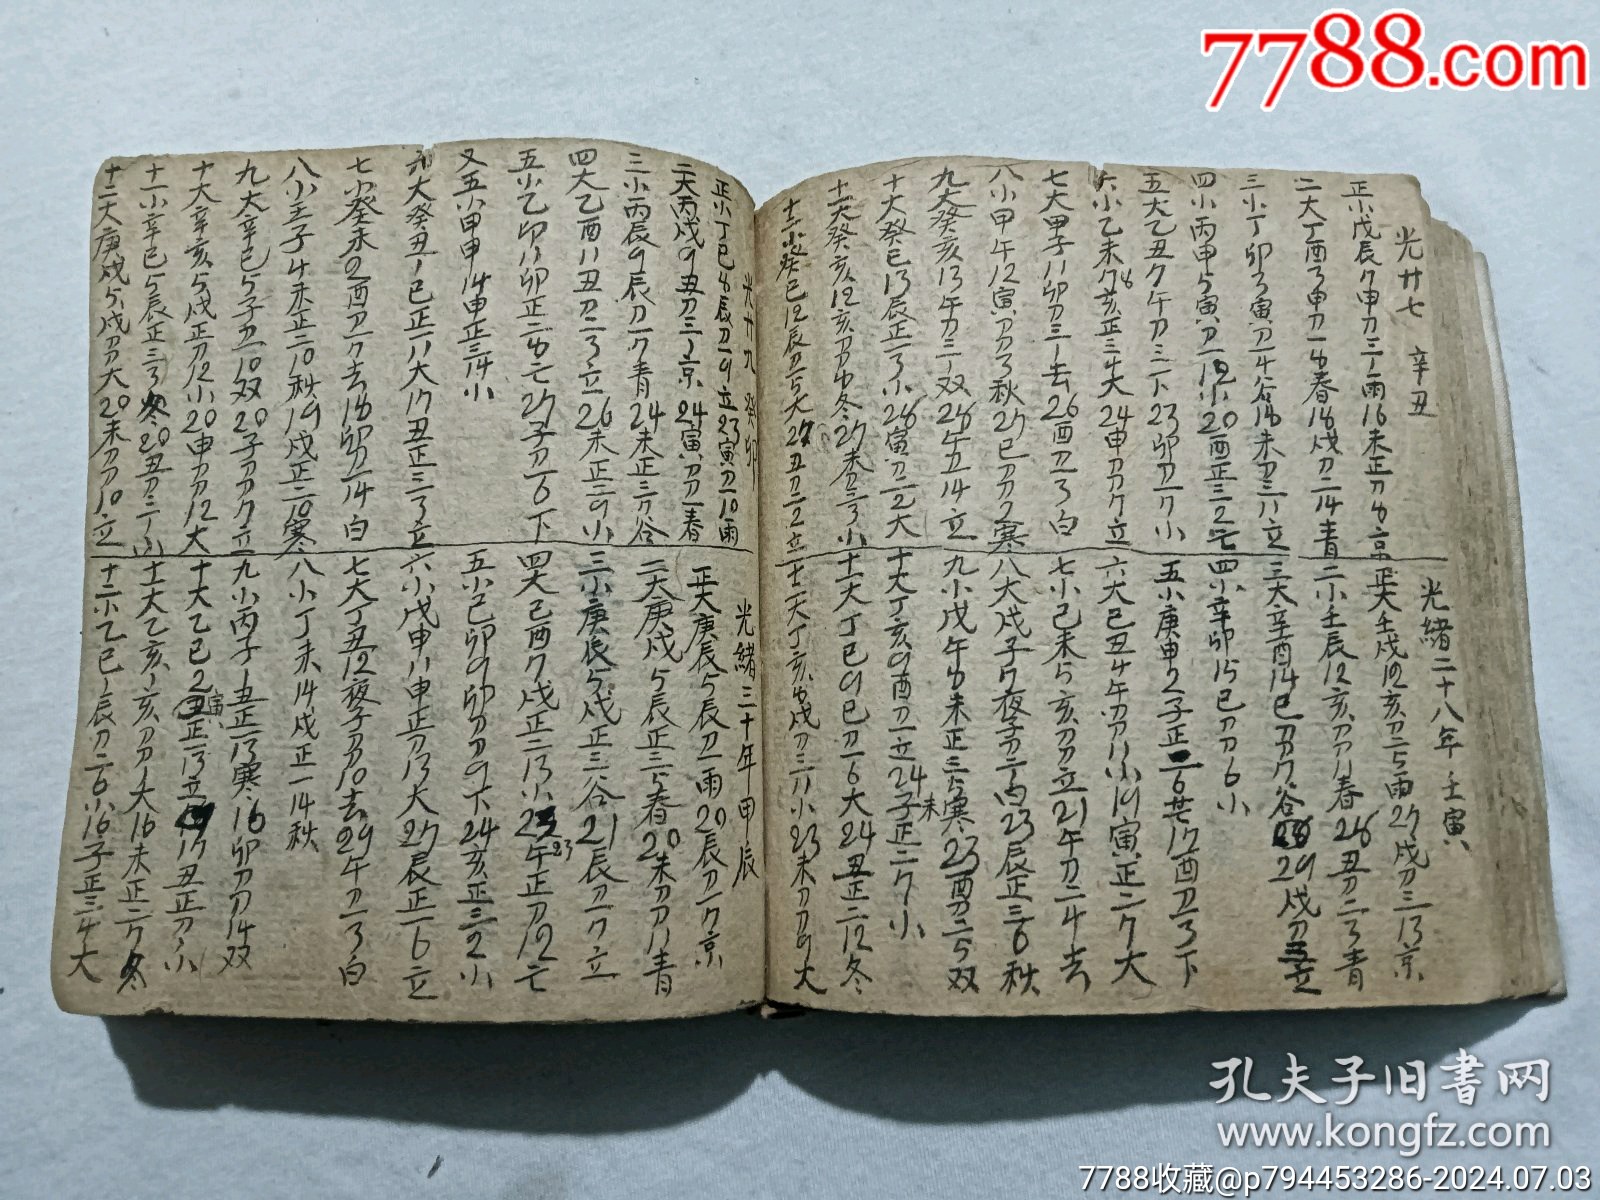 7788.com
光廿七 辛丑
正小戊辰7申刀三1雨16未正刀8京
二大丁酉3申刀一8春18戌刀二14青
三小丁卯3寅刀一4谷18未刀三11立
四小丙申5寅刀一12小20酉正三2芒
五大乙丑7午刀三1下23卯刀一7小
六小乙未78亥正三4大24申刀刀7立
七大甲子11卯刀三1去26酉刀一3白
八小甲午12寅刀刀3秋27巳刀刀7寒
九大癸亥13午刀三1双28午五14立
十大癸巳13辰正二3小28寅刀二2大
十一大癸亥12亥刀刀8冬27未刀三3小
十二小癸巳12辰刀二5大27丑刀二2立
光緒二十八年壬寅
正大壬戌12亥刀二5雨27戌刀三13京
二小壬辰12亥刀刀11春28丑刀二3青
三大辛酉14巳刀刀7谷29戌刀五立
四小辛卯15巳刀刀6小
五小庚申2子正二6芒17酉刀一3下
六大己丑4午刀刀11小19寅正二7大
七小己未5亥刀刀立21午刀二4去
八大戊子7夜子刀二1白23辰正三6秋
九小戊午8未正三5寒23酉刀二5双
十大丁亥9酉刀一立24子正二7小
十一大丁巳9巳刀一6大24丑正二12冬
十二大丁亥8戌刀三11小23未刀刀9大
光廿九 癸卯
正小丁巳8辰刀一9立23寅刀一10雨
二大丙戌9丑刀三1京24寅刀刀1春
三小丙辰9辰刀一7青24未正三7谷
四大乙酉11丑刀二3立26未正三9小
五小乙卯11卯正二8芒27子刀一6下
又五小甲申14申正三14小
六大癸丑1巳正一11大17丑正三3立
七小癸未2酉刀一7去18卯刀一14白
八小壬子4未正二10秋19戌正二10寒
九大辛巳5子刀一10双20子刀刀7立
十大辛亥5戌正刀12小20申刀刀12大
十一小辛巳5辰正三3冬20丑刀三1小
十二大庚戌5戌刀刀大20未刀刀10立
光緒三十年甲辰
正大庚辰5辰刀一雨20辰刀一7京
二大庚戌5辰正三5春20未刀刀11青
三小庚辰5戌正三谷21辰刀一7立
四大己酉7戌正二13小23午正刀12芒
五小己卯9卯刀刀9下24亥正三2小
六小戊申11申正刀13大27辰正一6立
七大丁丑12夜子刀刀10去29午刀一3白
八小丁未14戌正一14秋
九小丙子1丑正一13寒16卯刀刀14双
十大乙巳2寅正一13立17丑正刀1小
十一大乙亥1亥刀刀1大16未正二7冬
十二小乙巳1辰刀二6小16子正三4大
孔夫子旧書网
www.kongfz.com
7788收藏@p794453286-2024.07.03